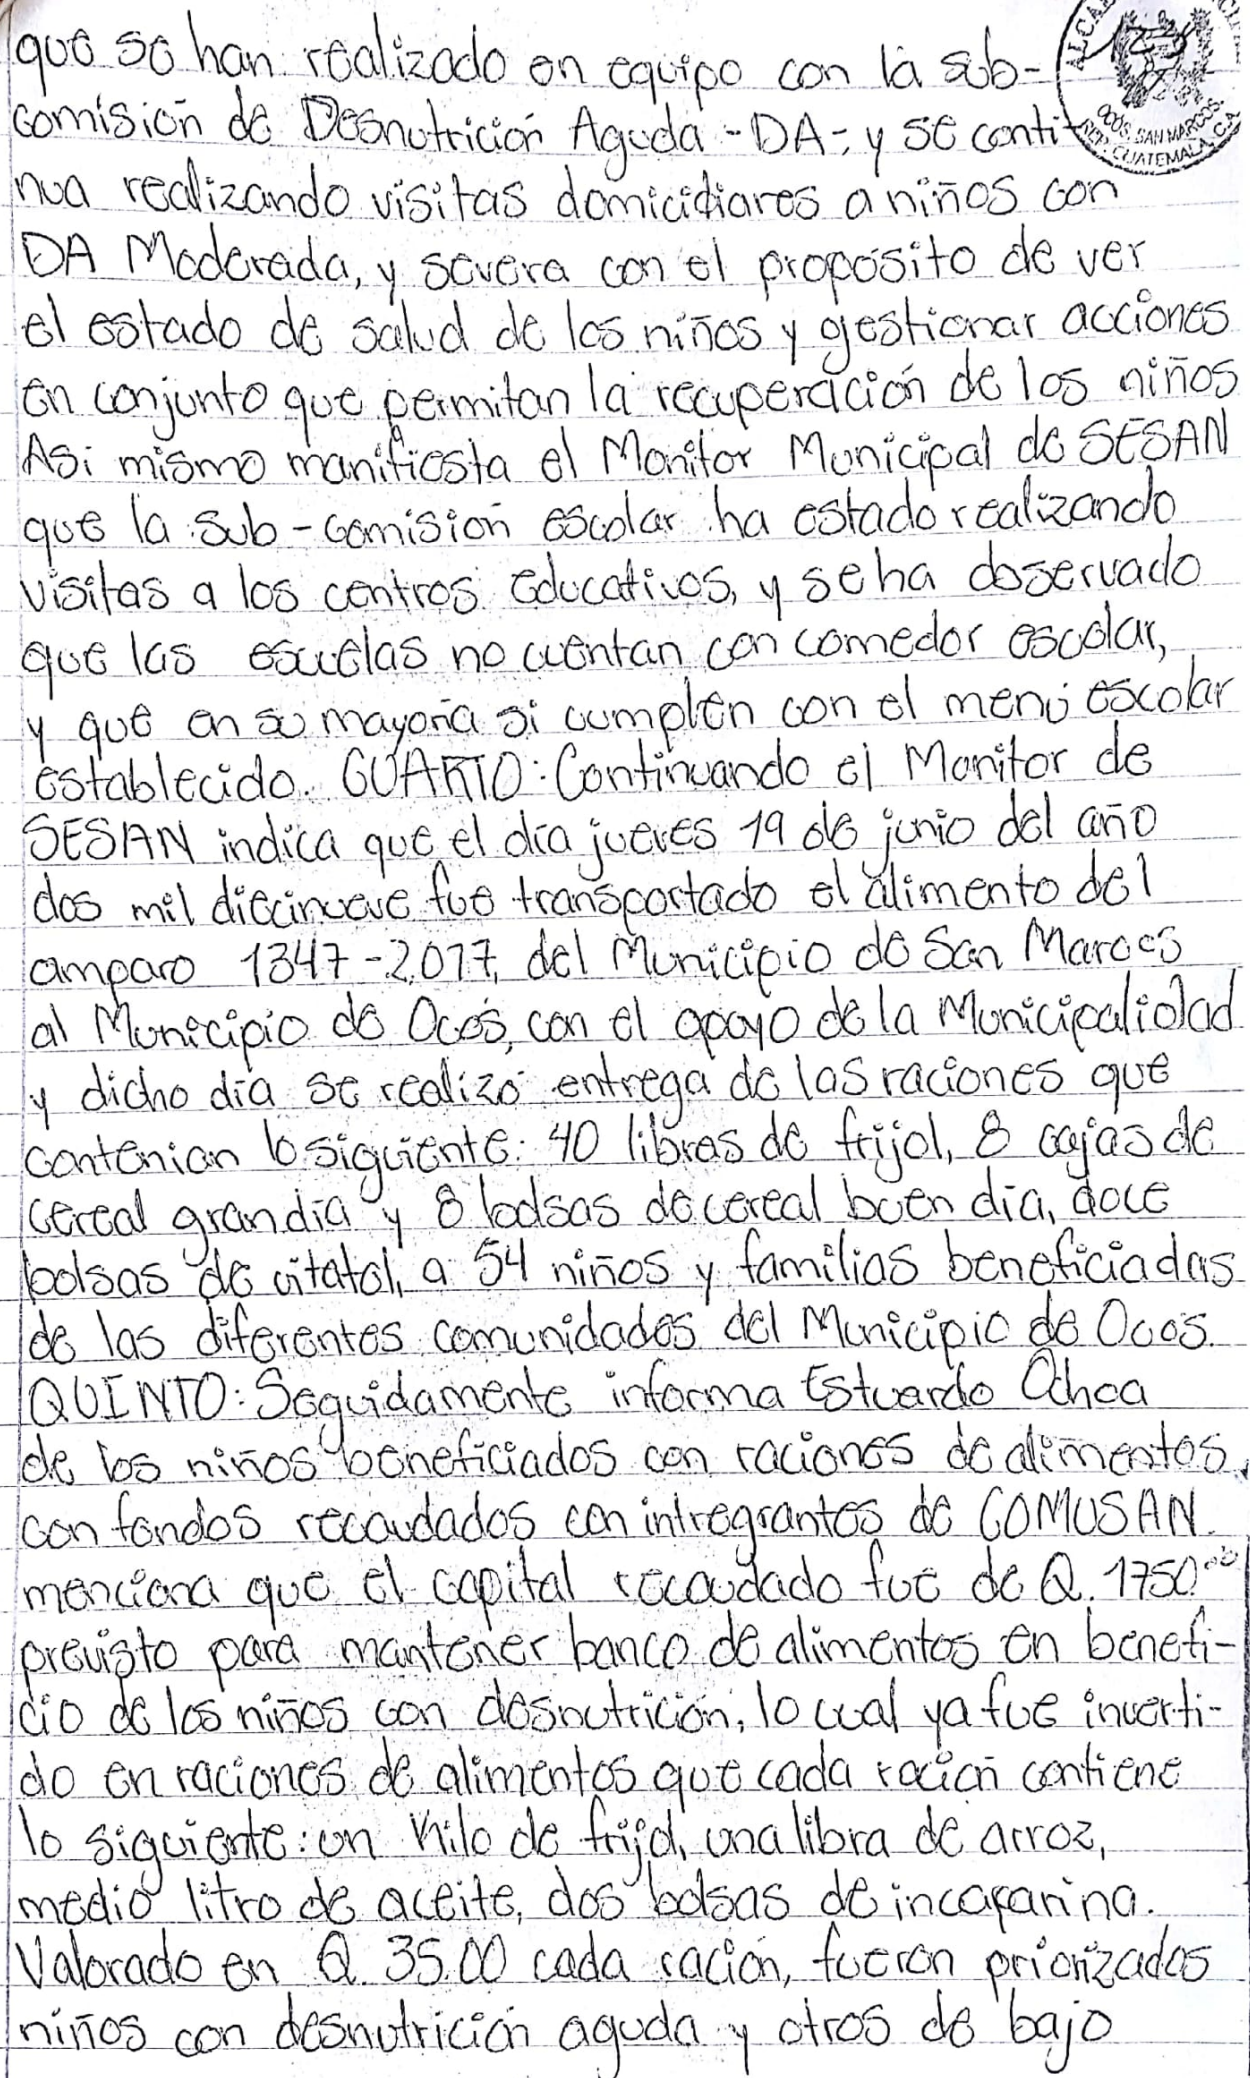 que se han realizado en equipo con la sub-
comisión de Desnutrición Aguda -DA-, y se conti
nua realizando visitas domicidiares a niños con
DA Moderada, y severa con el proposito de ver
el estado de salud de los niños y gestionar acciones
en conjunto que permitan la recuperación de los niños
Asi mismo manifiesta el Monitor Municipal de SESAN
que la sub-comisión escolar ha estado realizando
visitas a los centros educativos, y se ha observado
que las escuelas no cuentan con comedor escolar,
y que en su mayoria si cumplen con el menú escolar
establecido. CUARTO: Continuando el Monitor de
SESAN indica que el día jueves 19 de junio del año
dos mil diecinueve fue transportado el alimento del
amparo 1347-2,017, del Municipio de San Marcos
al Municipio de Ocós, con el apoyo de la Municipalidad
y dicho día se realizó entrega de las raciones que
contenian lo siguiente: 40 libras de frijol, 8 cajas de
cereal grandia y 8 bolsas de cereal buen dia, doce
bolsas de vitatol, a 54 niños y familias beneficiadas
de las diferentes comunidades del Municipio de Ocos.
QUINTO: Seguidamente informa Estuardo Ochoa
de los niños beneficiados con raciones de alimentos,
con fondos recaudados con intregrantes de COMUSAN.
menciona que el capital recaudado fue de Q. 1750.00
previsto para mantener banco de alimentos en benefi-
cio de los niños con desnutrición; lo cual ya fue inverti-
do en raciones de alimentos que cada ración contiene
lo siguiente: un Kilo de frijol, una libra de arroz,
medio litro de aceite, dos bolsas de incaparina.
Valorado en Q. 35.00 cada ración, fueron priorizados
niños con desnutrición aguda y otros de bajo
OCOS, SAN MARCOS
REP. GUATEMALA, C.A.